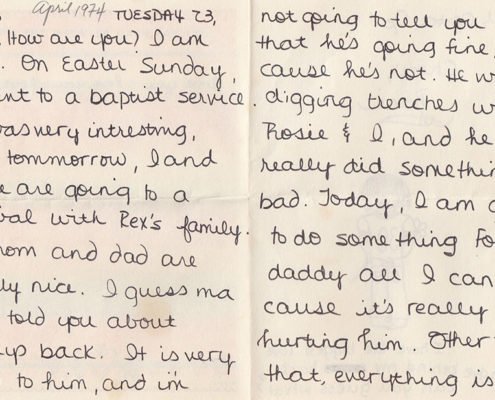 April 1974 TUESDAY 23,
. How are you? I am
. On Easter Sunday,
nt to a baptist service.
as very intresting,
tommorrow, I and
e are going to a
val with Rex's family.
mom and dad are
ly nice. I guess ma
told you about
up back. It is very
to him, and i'm
not going to tell you
that he's going fine,
cause he's not. He w
digging trenches w
Rosie & I, and he
really did somethin
bad. Today, I am
to do something Fo
daddy all I can
cause it's really
hurting him. Other
that, everything is